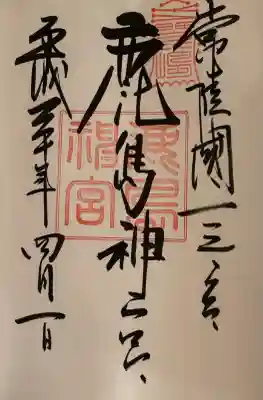 常陸國一之宮
鹿島神宮
平成三十年四月一日
鹿島神宮